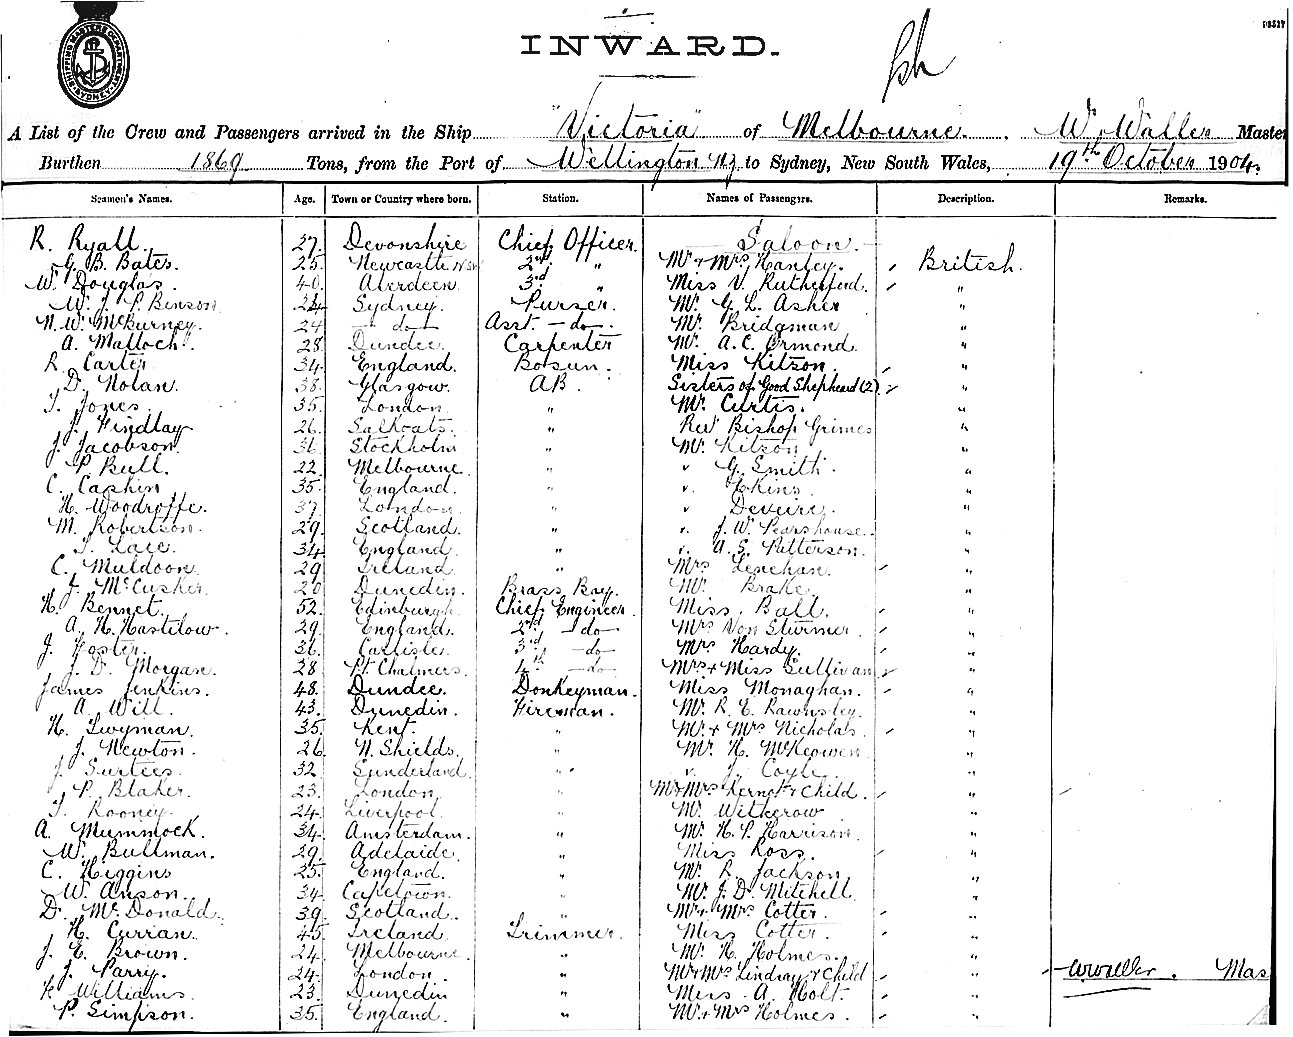 INWARD.
A List of the Crew and Passengers arrived in the Ship "Victoria" of Melbourne. W. Waller Master
Burthen 1869 Tons, from the Port of Wellington N.Z. to Sydney, New South Wales, 19th October 1904.
Seamen's Names. Age. Town or Country where born. Station. Names of Passengers. Description. Remarks.
R. Ryall. 27. Devonshire Chief Officer. Saloon.
G. B. Bates. 25. Newcastle N.S.W. 2nd " Mr & Mrs Hanley. British.
W. Douglas. 40. Aberdeen. 3rd " Miss V. Rutherford. "
W. J. P. Benson 24 Sydney. Purser. Mr. G. L. Asher "
N. W. McBurney. 24 — do — Asst. — do — Mr. Bridgman "
A. Malloch. 28. Dundee. Carpenter Mr. A. C. Ormond. "
R. Carter 34. England. Bosun. Miss Kitson. "
D. Nolan. 38. Glasgow. AB. Sisters of Good Shepheard (2) "
T. Jones. 35. London. " Mr. Curtis. "
J. Findlay 26. Saltcoats. " Revd Bishop Grimes "
J. Jacobson. 36. Stockholm " Mr. Kitson "
P. Bull. 22. Melbourne. " " G. Smith. "
C. Caskin 35. England. " " Ekins. "
H. Woodroffe. 37. London. " " "
M. Robertson. 29. Scotland. " " J. W. Pearshouse. "
34. England. " " A. S. Patterson. "
C. Muldoon. 29 Ireland. " Mrs Lenehan. "
J. McCusker. 20 Dunedin. Brass Boy. Mr. Brake "
H. Bennet. 52. Edinburgh. Chief Engineer. Miss Ball. "
A. H. Hastilow. 29. England. 2nd — do — Mrs Von Sturmer. "
J. Foster. 36. Carlisle. 3rd — do — Mrs Hardy. "
J. D. Morgan. 28 Pt. Chalmers. 4th — do — Mrs & Miss Sullivan "
James Jenkins. 48. Dundee. Donkeyman. Miss Monaghan. "
A. Will. 43. Dunedin. Fireman. Mr. R. E. Rawnsley. "
H. Twyman. 35. Kent. " Mr & Mrs Nicholas. "
J. Newton. 26 N. Shields. " Mr. H. McKeowen "
J. Surtees. 32 Sunderland. " " J. Coyle. "
P. Blaker. 23. London. " Mr & Mrs & Child. "
T. Rooney. 24. Liverpool. " Mr. Witherow "
A. Mummock. 34. Amsterdam. " Mr. H. P. Harrison. "
W. Bullman. 29. Adelaide. " Miss Ross. "
C. Higgins 25. England. " Mr. R. Jackson. "
W. Anson. 34 Capetown. " Mr. J. D. Mitchell. "
D. McDonald. 39. Scotland. " Mr & Mrs Cotter. "
H. Curran. 45. Ireland. Trimmer. Miss Cotter. "
J. E. Brown. 24. Melbourne. " Mr. H. Holmes. "
J. Parry. 24. London. " Mr & Mrs Lindsay & Child " W Waller. Mas
K Williams. 23. Dunedin " Miss A. Holt. "
P. Simpson. 35. England. " Mr & Mrs Holmes. "